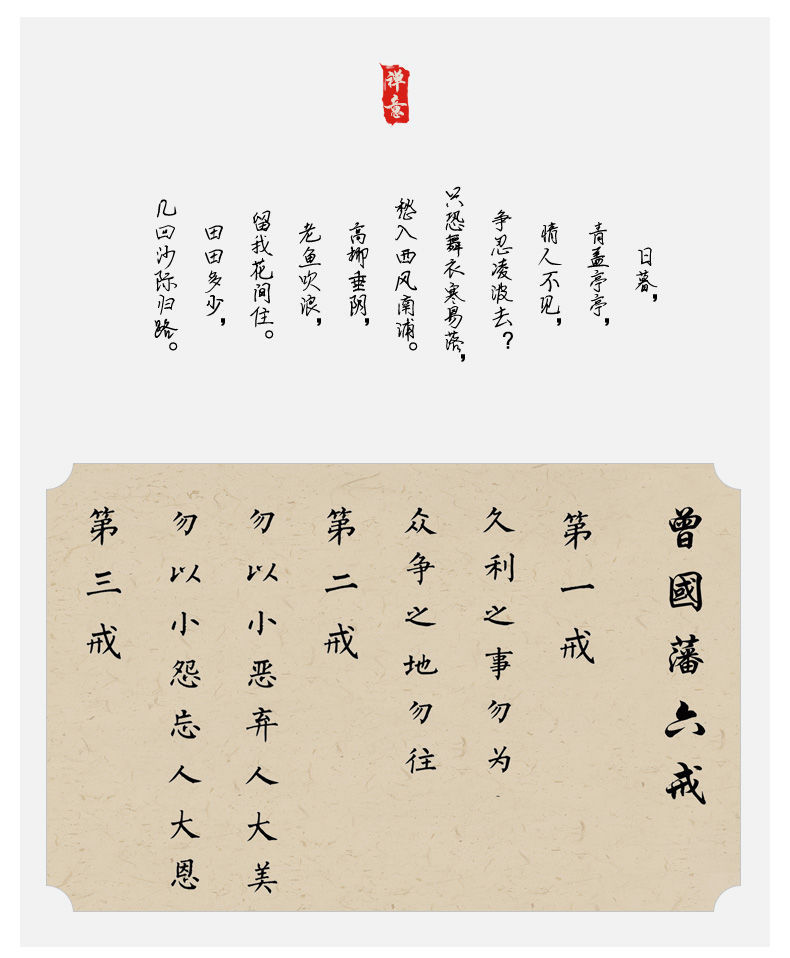 禅意
日暮，
青盖亭亭，
情人不见，
争忍凌波去？
只恐舞衣寒易落，
愁入西风南浦。
高柳垂阴，
老鱼吹浪，
留我花间住。
田田多少，
几回沙际归路。
曾國藩六戒
第一戒
久利之事勿为
众争之地勿往
第二戒
勿以小恶弃人大美
勿以小怨忘人大恩
第三戒